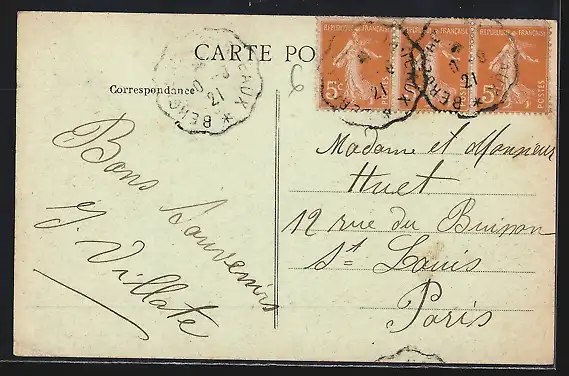 CARTE PO
Correspondance
REPUBLIQUE FRANÇAISE
5c
POSTES
REPUBLIQUE FRANÇAISE
POSTES
REPUBLIQUE FRANÇAISE
5c
POSTES
21
21
21
Bons Souvenirs
J. Villate
Madame et Monsieur
Huet
12 rue du Buisson
St Louis
Paris